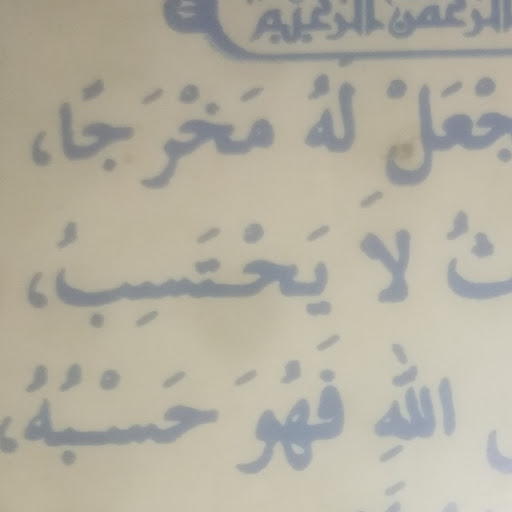 الرحمن الرحيم
جْعَلْ لَهُ مَخْرَجًا،
لَا يَحْتَسِبُ،
اللَّهِ فَهُوَ حَسْبُهُ،